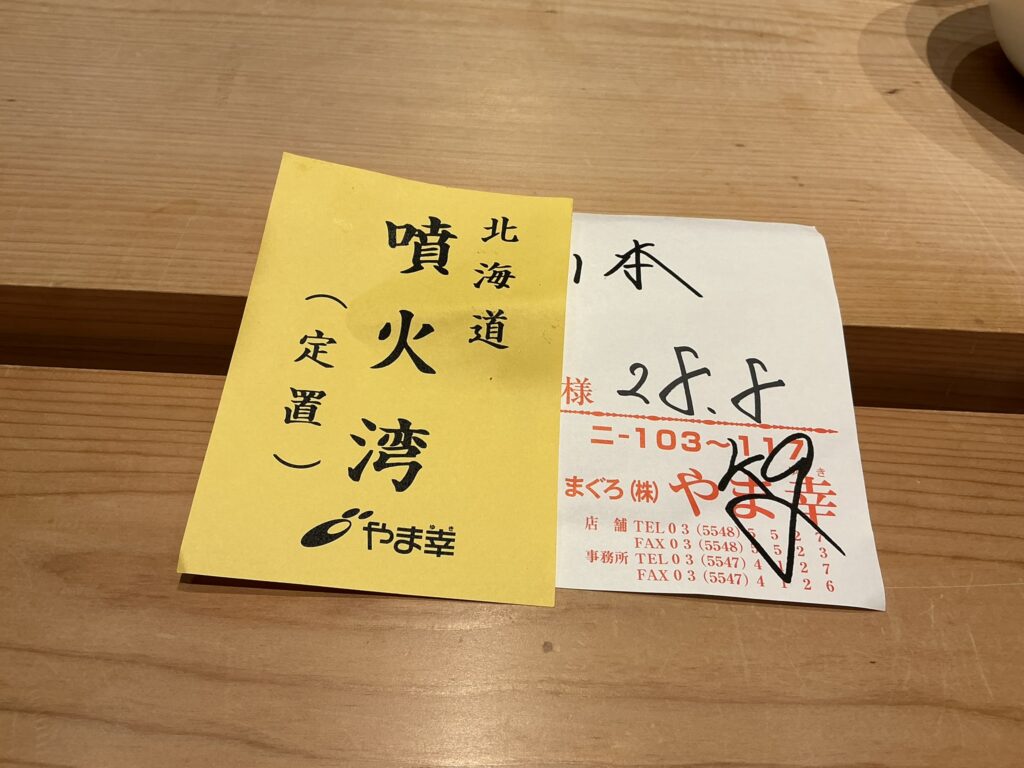 北海道
噴火湾
(定置)
やま幸
ゆき
本
様 28.8
ニ-103〜117
kg
まぐろ(株) やま幸
き
店舗 TEL03(5548)5527
FAX03(5548)5523
事務所 TEL03(5547)4127
FAX03(5547)4126